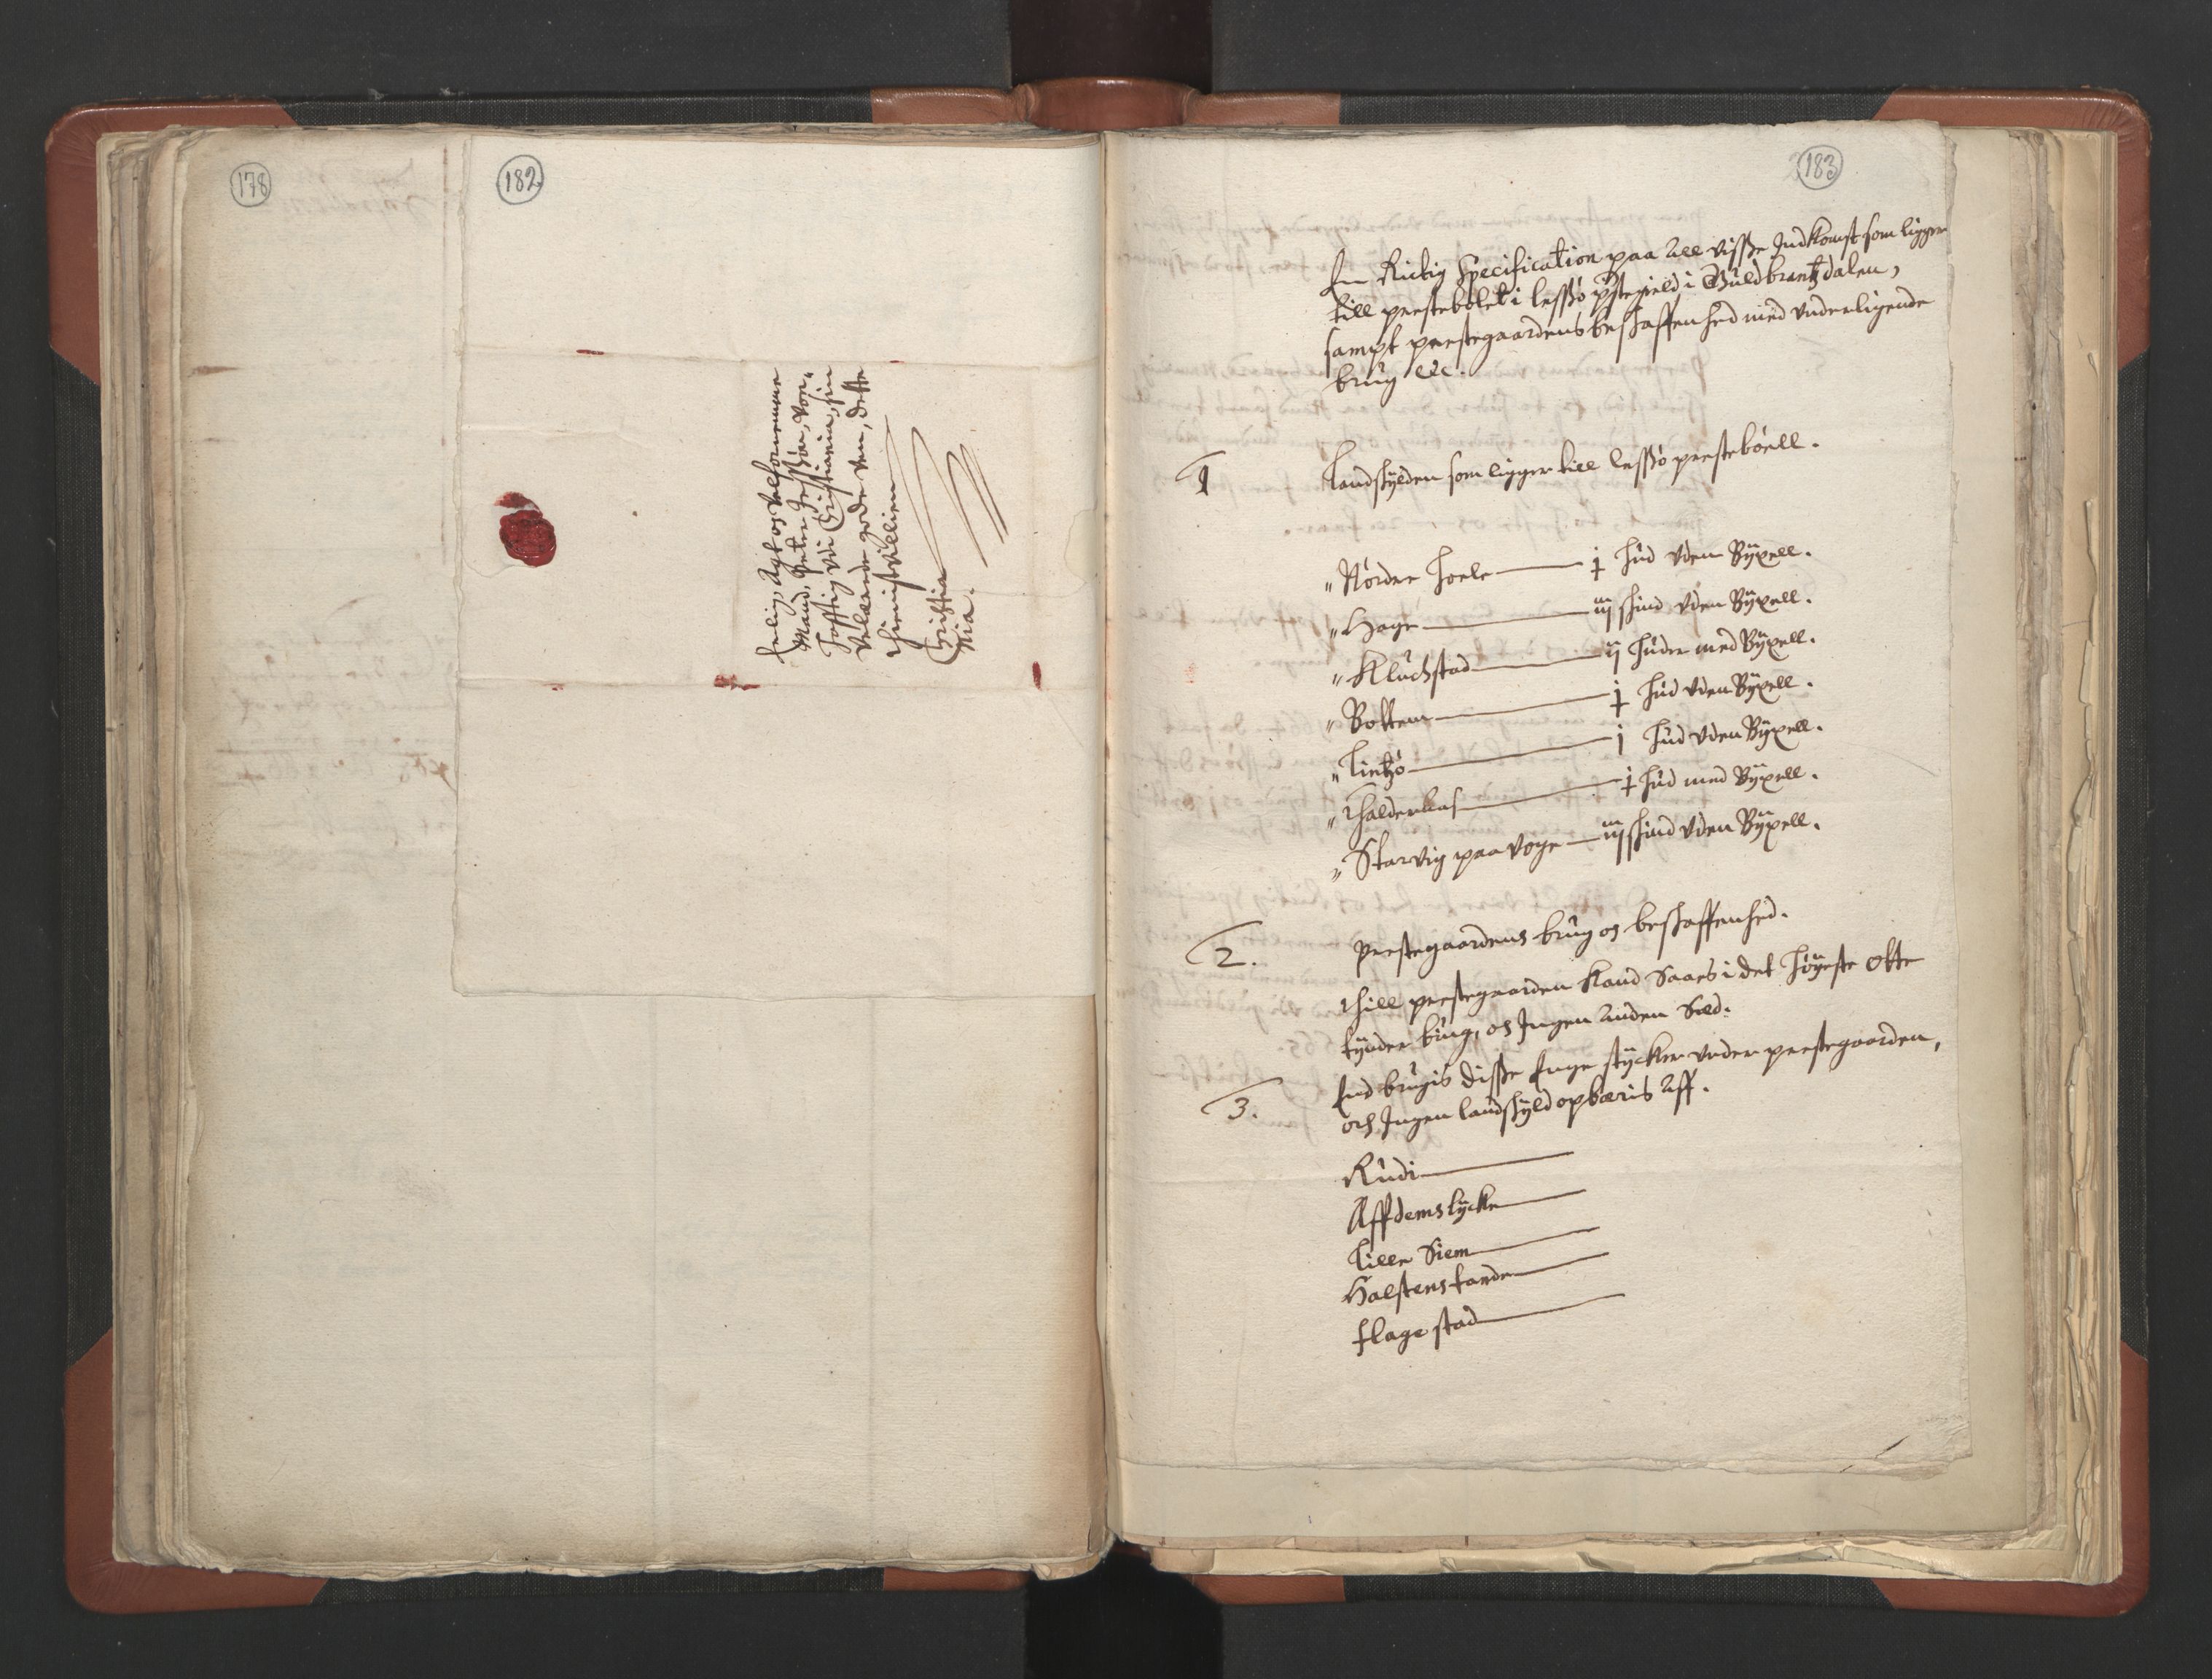 178
182
Erlig, Agt og velfornemme
Mand, Peter Jessøn, Vor-
velærende gode Ven, dette
thienistvilligen
Christia
nia.
183
En Richtig Specification paa All visse Indkomst som ligger
till prestebolet i lessø pstegield i Guldbrantzdalen,
sampt prestegaardens beskaffenhed med vnderligende
brug etc.
1
Landskylden som ligger till lessø presteboell.
" Nordre Hoele — j hud vden Byxell.
" Hage — iij skind vden Byxell.
" Kluchstad — ij huder med Byxell.
" Bottem — j hud vden Byxell.
" Lintzø — j hud vden Byxell.
" — j hud med Byxell.
" Starvig paa Voge — iij skind vden Byxell.
2.
Prestegaardens brug og beskaffenhed.
Thill prestegaarden kand Saaes i det Høyeste Otte
tynder biug, och Ingen Anden Sæd.
3.
End brugis disse Enge stycker vnder prestegaarden,
och Ingen landskyld opbæris Aff.
Rudi —
Affdemslycke —
Lille Siem —
Halstenstande —
Flagestad —